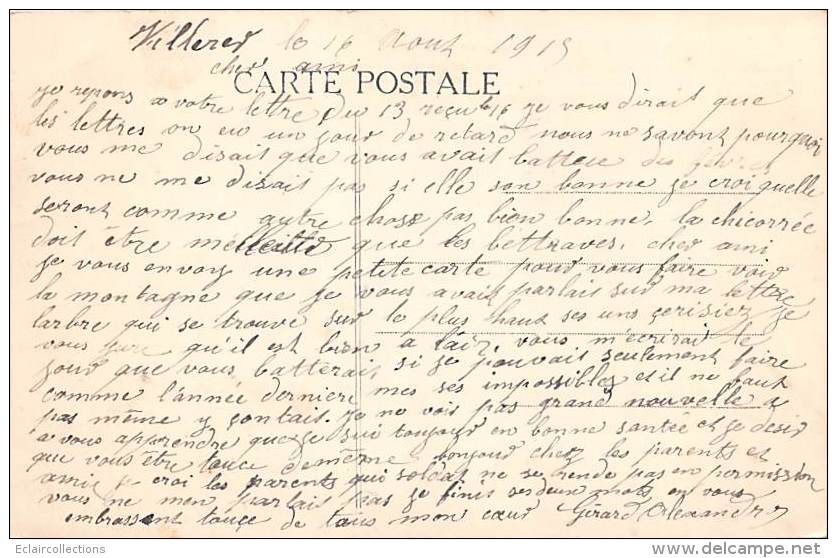 Villers le 16 Aout 1915
cher ami
CARTE POSTALE
je repons a votre lettre du 13 reçu le 16 je vous dirait que
les lettres on eu un jour de retard nous ne savont pourquoi
vous me disait que vous avait batteu des fèves
vous ne me disait pas si elle son bonne je croi quelle
seront comme autre chose pas bien bonne. la chicorrée
doit être meilleure que les bettraves. cher ami
je vous envoy une petite carte pour vous faire voir
la montagne que je vous avait parlait sur ma lettre
larbre qui se trouve sur le plus haut ses un cerisiez je
vous jure qu'il est bien a lair, vous m'écrirai le
jour que vous batterai, si je pouvait seulement faire
comme l'année derniere mes ses impossibles et il ne faut
pas même y contait. je ne vois pas grand nouvelle a
a vous apprendre que je sui toujour en bonne santée et je desir
que vous être touce de même. bonjour chez les parents et
amis croi les parents qui soldat ne se rende pas en permission
vous ne men parlait pas je finis ses deux mots en vous
embrassent touce de tous mon cœur Girard Alexandre
Eclaircollections
©delcampe.net